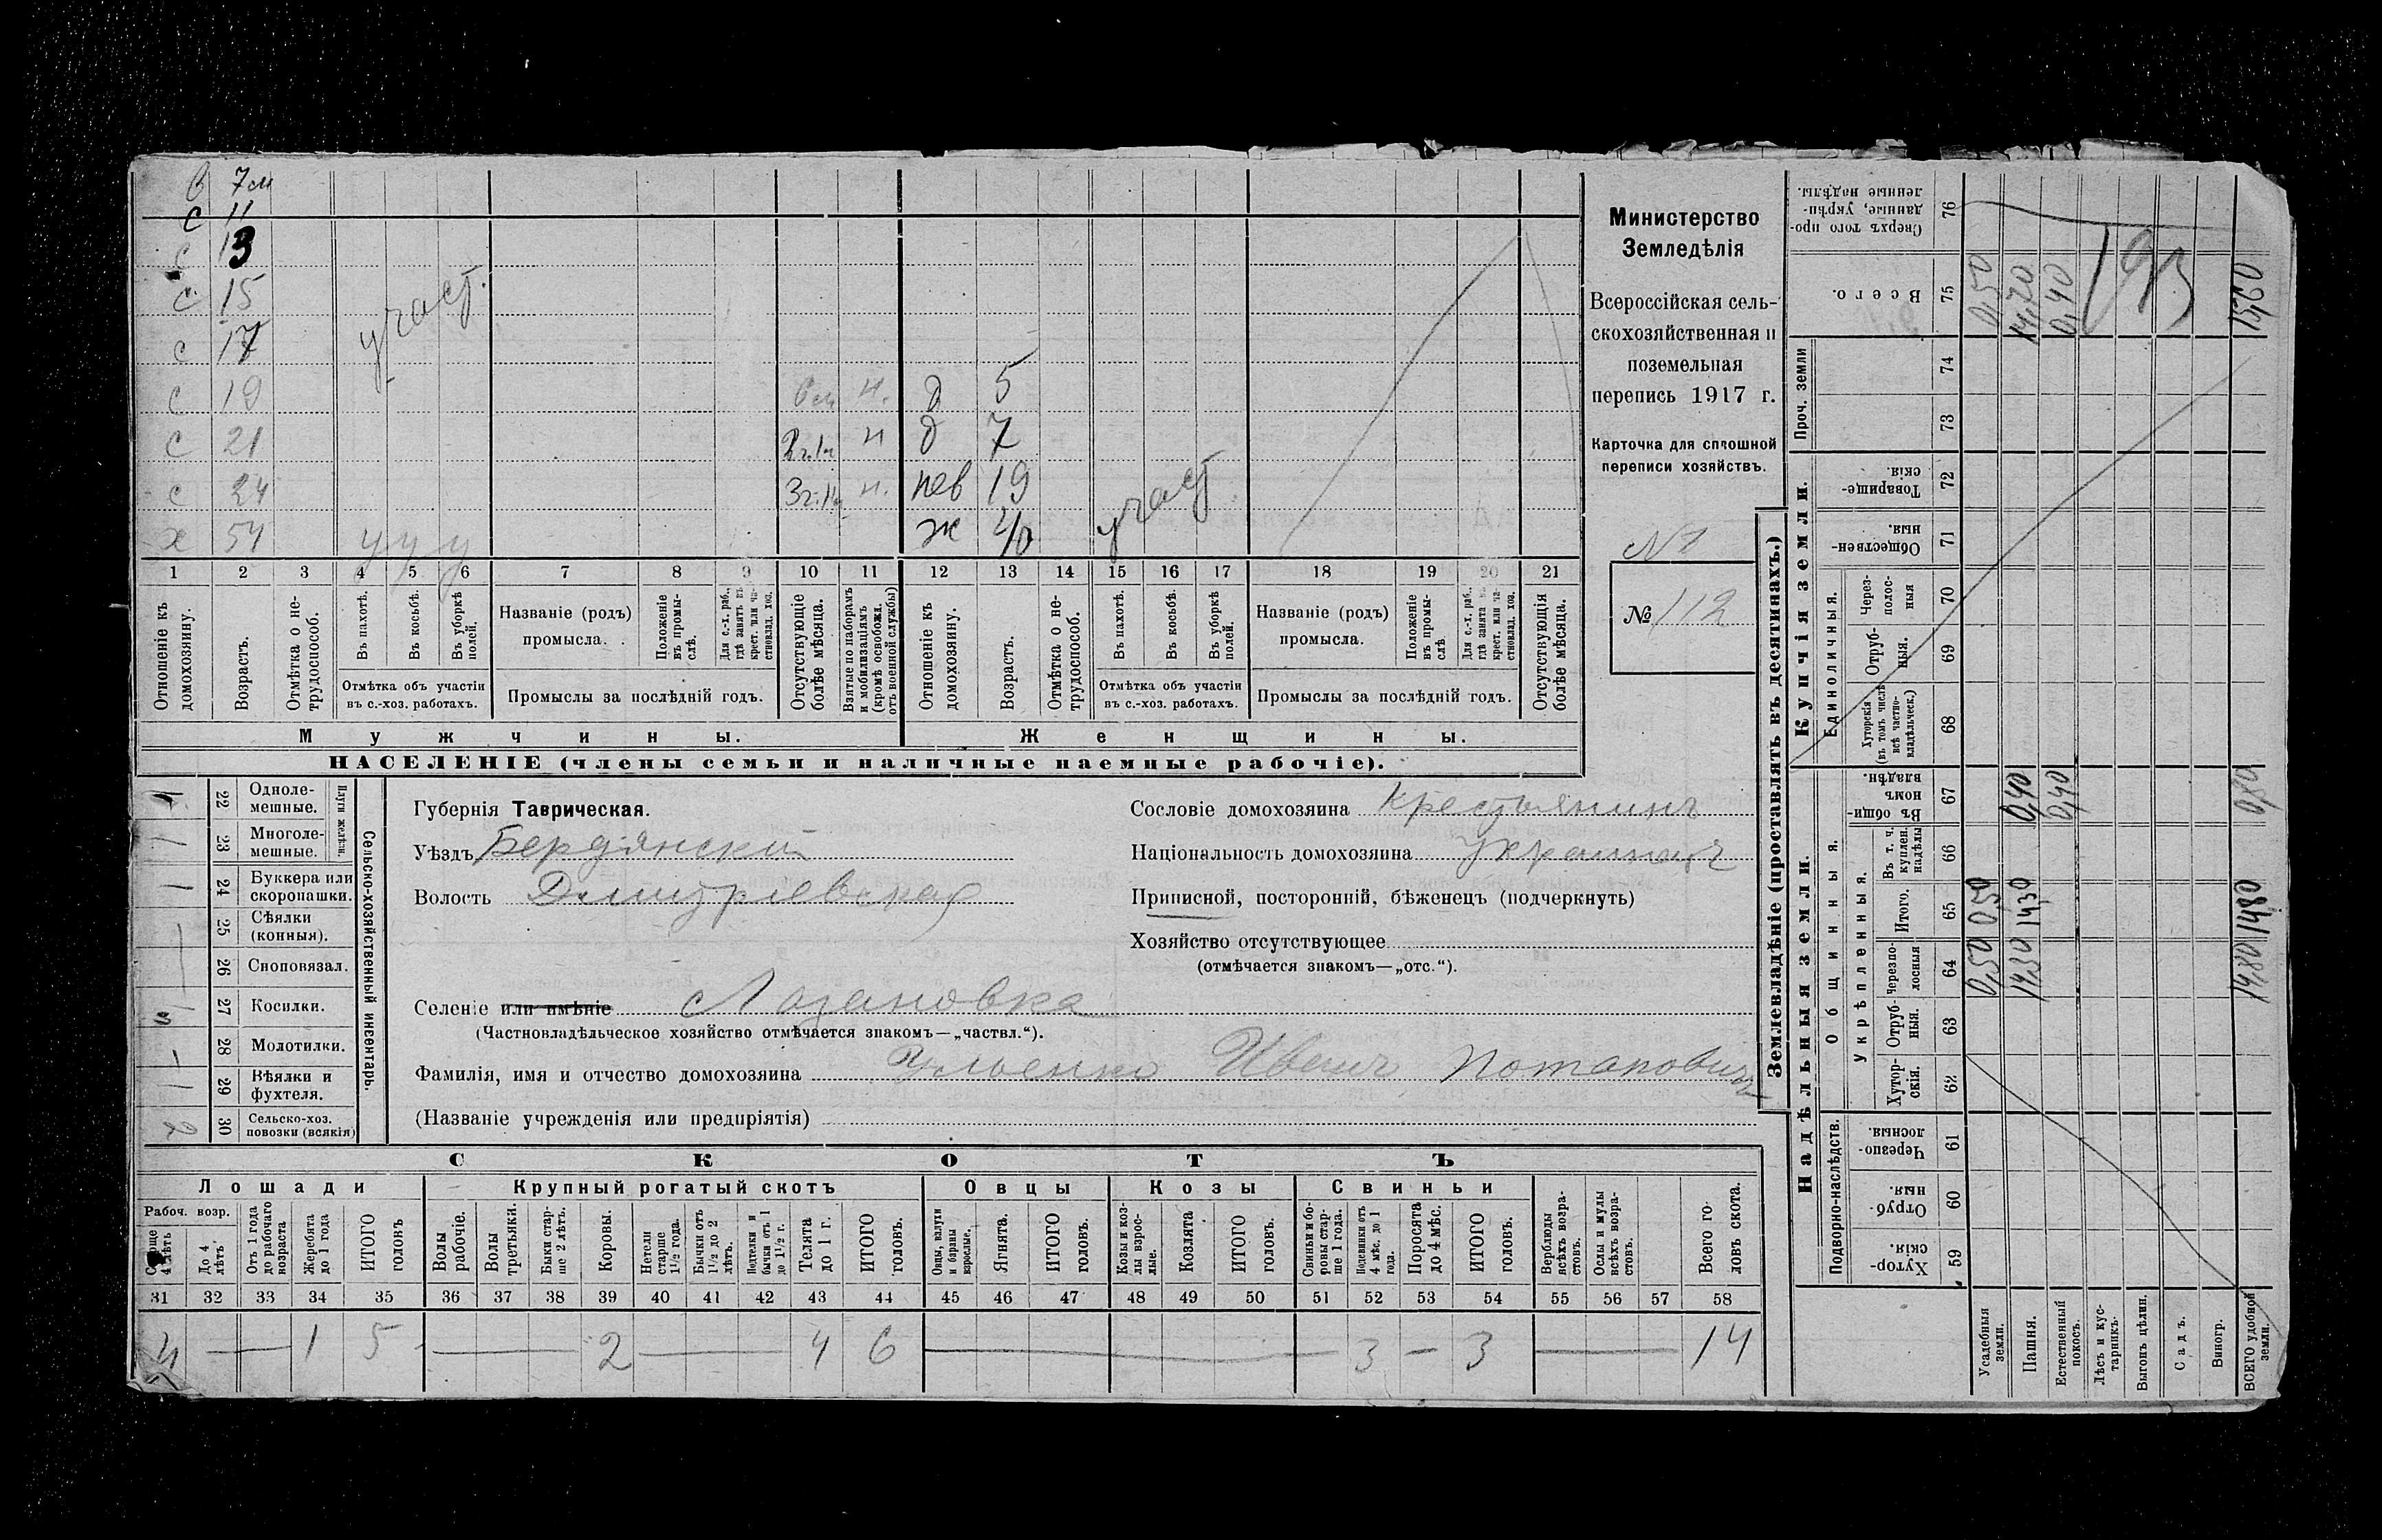 в 7 м
с 11
с 13
с 15
с 17
с 19 6 м н. д 5
с 21 2 г. 1 м н д 7
с 24 н. нев 19
х 54 у у у ж 40
участ.
участ
1 2 3 4 5 6 7 8 9 10 11 12 13 14 15 16 17 18 19 20 21
Отношеніе къ домохозяину.
Возрастъ.
Отмѣтка о нетрудоспособ.
Въ пахотѣ.
Въ косьбѣ.
Въ уборкѣ полей.
Отмѣтка объ участіи
въ с.-хоз. работахъ.
Названіе (родъ)
промысла.
Положеніе въ промыслѣ.
Для с.-х. раб., гдѣ занятъ въ крест. или частновлад. хоз.
Промыслы за послѣдній годъ.
Отсутствующіе болѣе мѣсяца.
Взятые по наборамъ и мобилизаціямъ (кромѣ освобожд. отъ военной службы)
Отношеніе къ домохозяину.
Возрастъ.
Отмѣтка о нетрудоспособ.
Въ пахотѣ.
Въ косьбѣ.
Въ уборкѣ полей.
Отмѣтка объ участіи
въ с.-хоз. работахъ.
Названіе (родъ)
промысла.
Положеніе въ промыслѣ
Для с.-х. раб., гдѣ занята въ крест. или частновлад. хоз.
Промыслы за послѣдній годъ.
Отсутствующія болѣе мѣсяца.
Мужчины.
Женщины.
НАСЕЛЕНІЕ (члены семьи и наличные наемные рабочіе).
Министерство
Земледѣлія
Всероссійская сель-
скохозяйственная и
поземельная
перепись 1917 г.
Карточка для сплошной
переписи хозяйствъ.
№
№ 112
Плуги желѣзн.
22 Одноле-
мешные.
1 23 Многоле-
мешные.
1 24 Буккера или
скоропашки.
25 Сѣялки
(конныя).
26 Сноповязал.
27 Косилки.
28 Молотилки.
1 29 Вѣялки и
фухтеля.
2 30 Сельско-хоз.
повозки (всякія)
Сельско-хозяйственный инвентарь.
Губернія Таврическая.
Уѣздъ Бердянскій
Волость Дмитріевская
Селеніе или имѣніе Лозановка
(Частновладѣльческое хозяйство отмѣчается знакомъ—„частвл.“).
Фамилія, имя и отчество домохозяина Ульенко Иванъ Потаповичъ
(Названіе учрежденія или предпріятія)
Сословіе домохозяина Крестьянинъ
Національность домохозяина украинецъ
Приписной, посторонній, бѣженецъ (подчеркнуть)
Хозяйство отсутствующее
(отмѣчается знакомъ—„отс.“).
СКОТЪ
Лошади
Крупный рогатый скотъ
Овцы
Козы
Свиньи
Рабоч. возр.
Старше 4 лѣтъ
До 4 лѣтъ
Отъ 1 года до рабочаго возраста
Жеребята до 1 года
ИТОГО головъ
Волы рабочіе.
Волы третьяки.
Быки старше 2 лѣтъ.
Коровы.
Нетели старше 1½ года.
Бычки отъ 1½ до 2 лѣтъ.
Подтелки и бычки отъ 1 до 1½ г.
Телята до 1 г.
ИТОГО головъ.
Овцы, валухи и бараны взрослые.
Ягнята.
ИТОГО головъ.
Козы и козлы взрослые.
Козлята
ИТОГО головъ.
Свиньи и боровы старше 1 года.
Подсвинки отъ 4 мѣс. до 1 года.
Поросята до 4 мѣс.
ИТОГО головъ.
Верблюды всѣхъ возрастовъ.
Ослы и мулы всѣхъ возрастовъ.
Всего головъ скота.
31 32 33 34 35 36 37 38 39 40 41 42 43 44 45 46 47 48 49 50 51 52 53 54 55 56 57 58
4 — 1 5 — 2 — 4 6 — 3 — 3 — 14
Землевладѣніе (проставлять въ десятинахъ.)
Надѣльныя земли.
Купчія земли.
Подворно-наслѣдств.
Общинныя.
Укрѣпленныя.
Единоличныя.
Проч. земли
Хуторскія. 59
Отрубныя. 60
Черезполосныя. 61
Хуторскія. 62
Отрубныя. 63
Черезполосныя 64
Итого. 65
Въ т. ч. куплен. надѣлы 66
Въ общинномъ владѣн. 67
Хуторскія (въ томъ числѣ всѣ частновладѣльческ.) 68
Отрубныя. 69
Черезполосныя 70
Общественныя. 71
Товарищескія. 72
73
74
Всего. 75
Сверхъ того проданные, укрѣпленные надѣлы. 76
Усадебныя земли. 0,50 0,50 0,50
Пашня. 14,30 14,30 0,40 14,70
Естественный покосъ. 0,40 0,40
Лѣсъ и кустарникъ.
Выгонъ цѣлин.
Садъ.
Виногр.
ВСЕГО удобной земли. 14,80 14,80 0,80 15,60
193